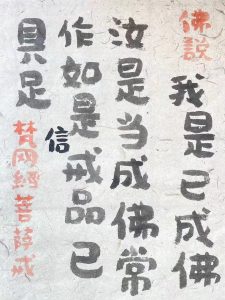 佛説
我是已成佛
汝是当成佛常
作如是戒品已
信
具足
梵网經菩萨戒